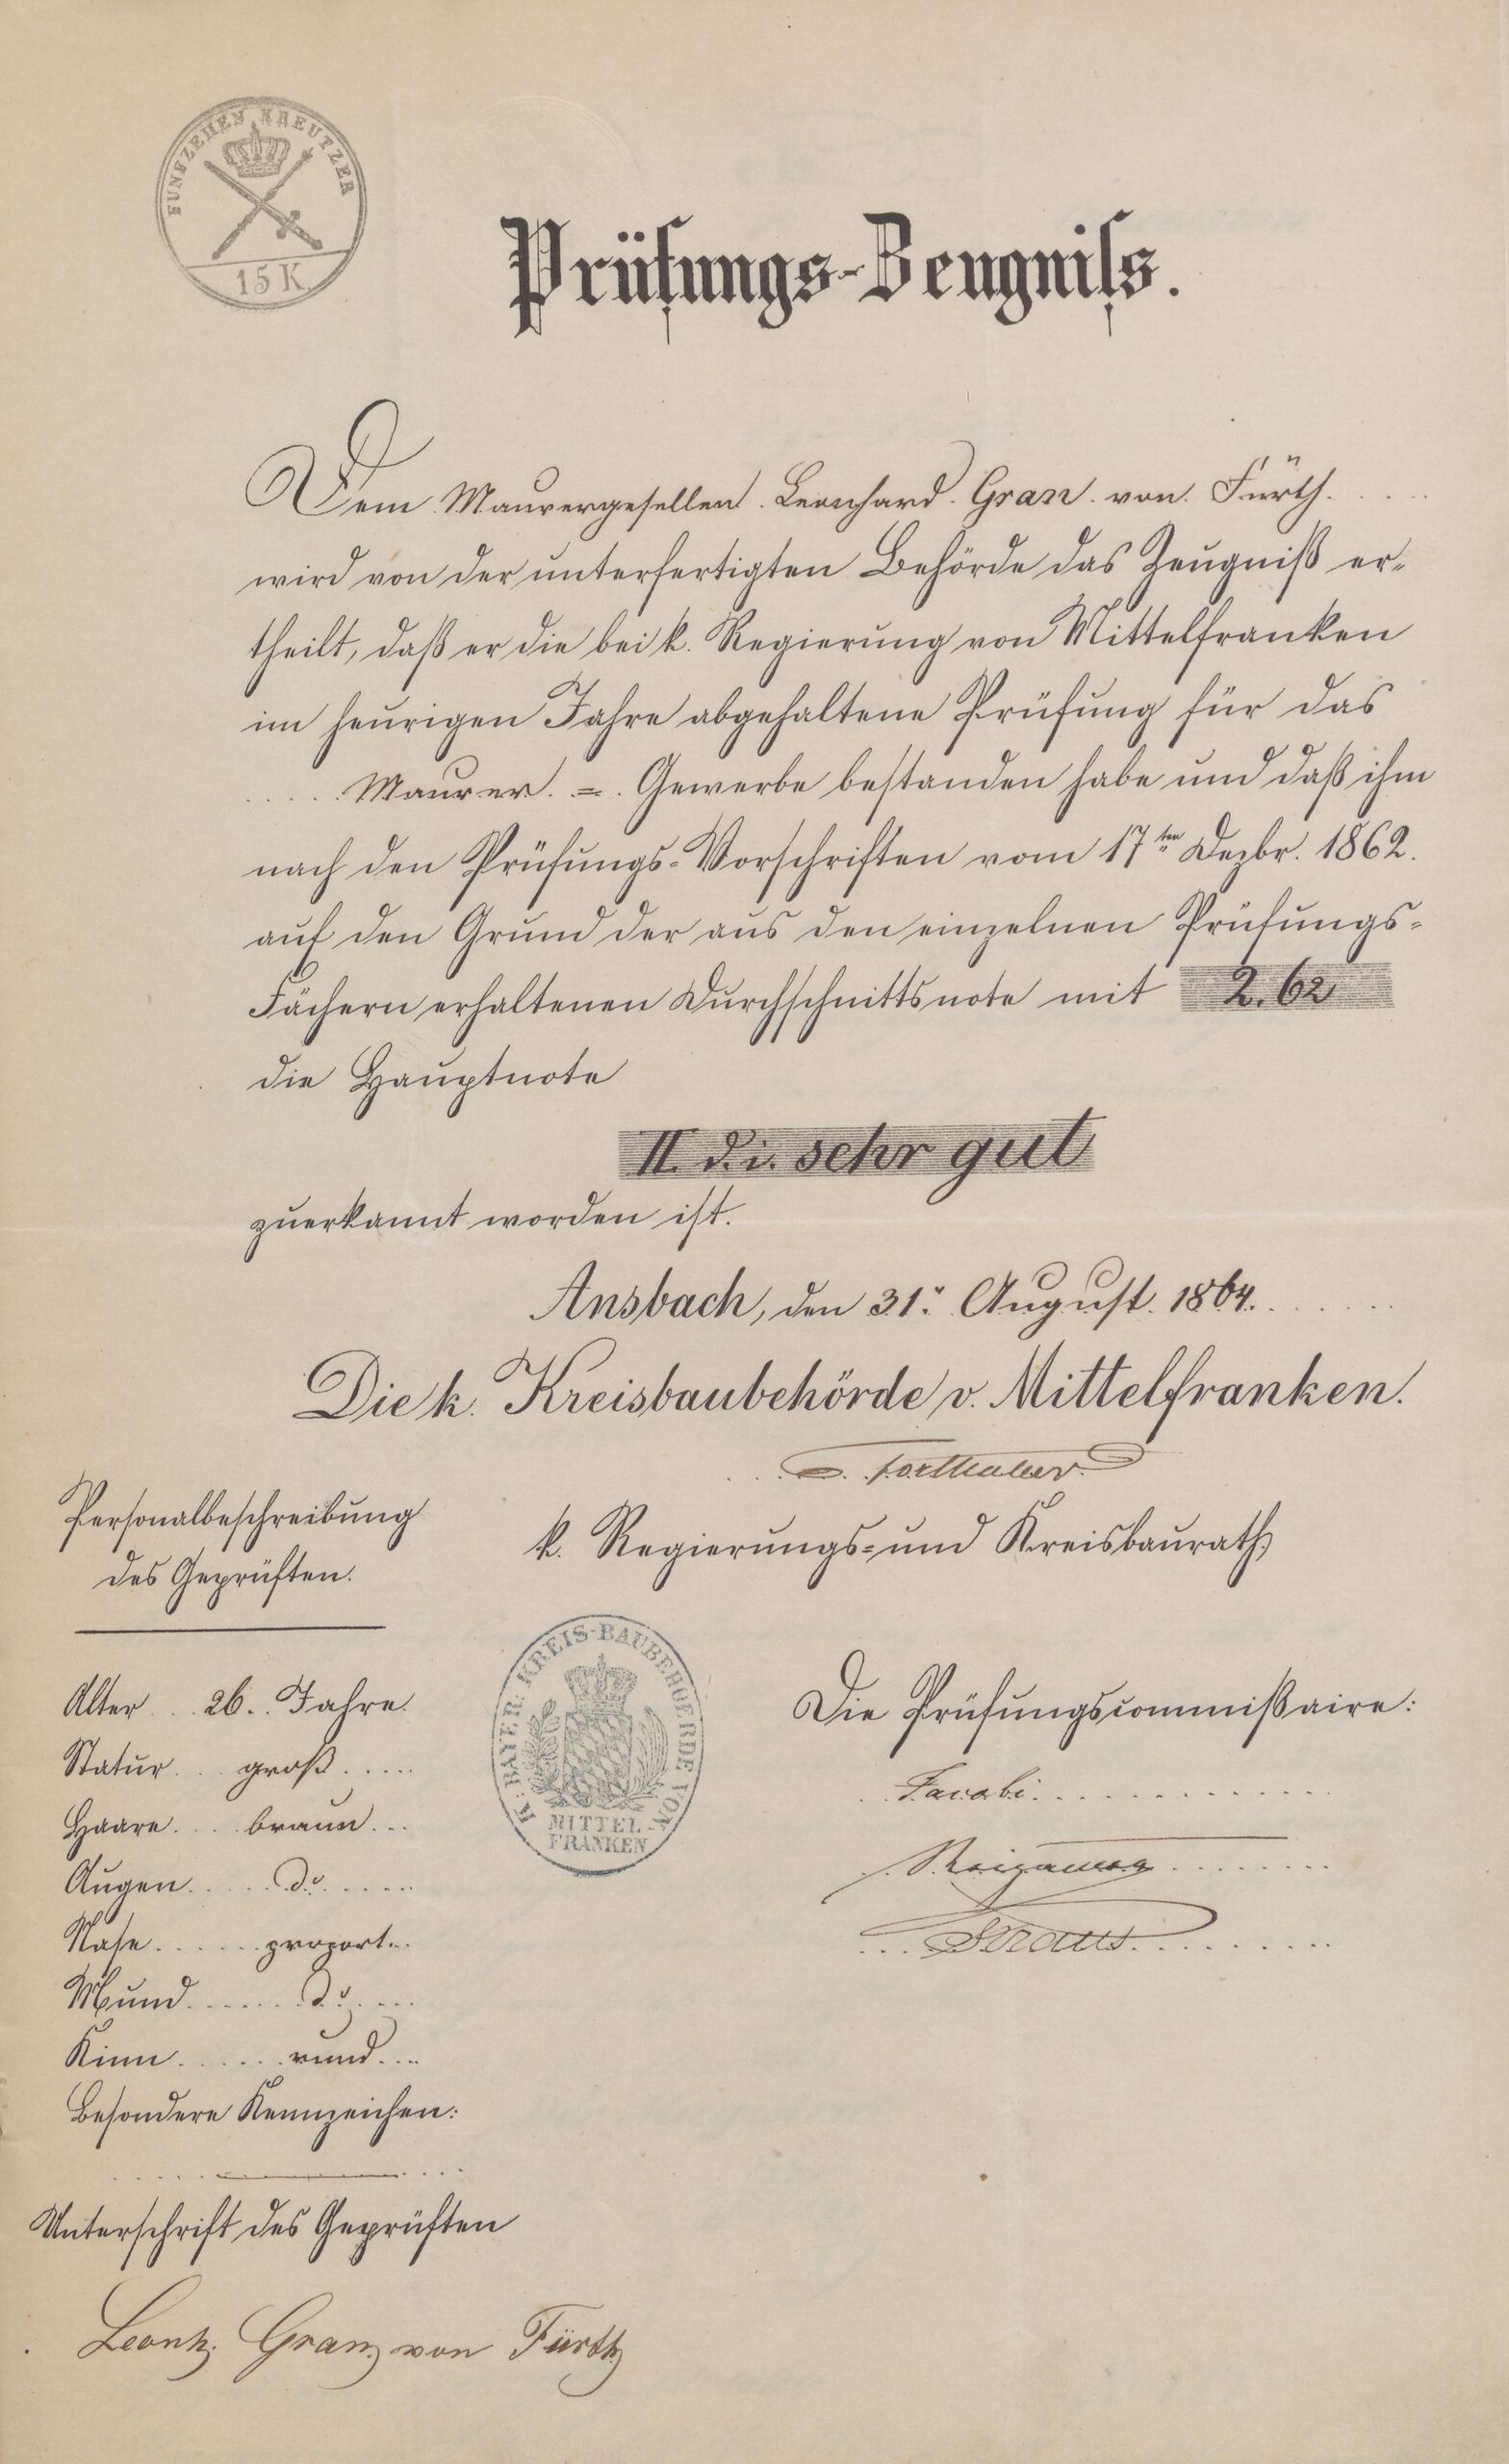 FUNFZEHEN KREUTZER
15 K
Prüfungs-Zeugniß.
Dem Maurergesellen Leonhard Gran von Fürth
wird von der unterfertigten Behörde das Zeugniß er-
theilt, daß er die bei k. Regierung von Mittelfranken
im heurigen Jahre abgehaltene Prüfung für das
Maurer = Gewerbe bestanden habe und daß ihm
nach den Prüfungs-Vorschriften vom 17ten Dezbr. 1862.
auf den Grund der aus den einzelnen Prüfungs-
Fächern erhaltenen Durchschnittsnote mit 2.62
die Hauptnote
II. d. i. sehr gut
zuerkannt worden ist.
Ansbach, den 31. August 1864.
Die k. Kreisbaubehörde v. Mittelfranken.
k. Regierungs- und Kreisbaurath.
Personalbeschreibung
des Geprüften.
Alter 26 Jahre
Statur groß
Haare braun
Augen do
Nase proport.
Mund do
Kinn rund
Besondere Kennzeichen:
Unterschrift des Geprüften
Leonh. Gran von Fürth
K. BAYER. KREIS-BAUBEHOERDE VON
MITTEL-
FRANKEN
Die Prüfungscommißaire:
Jacobi
Straus